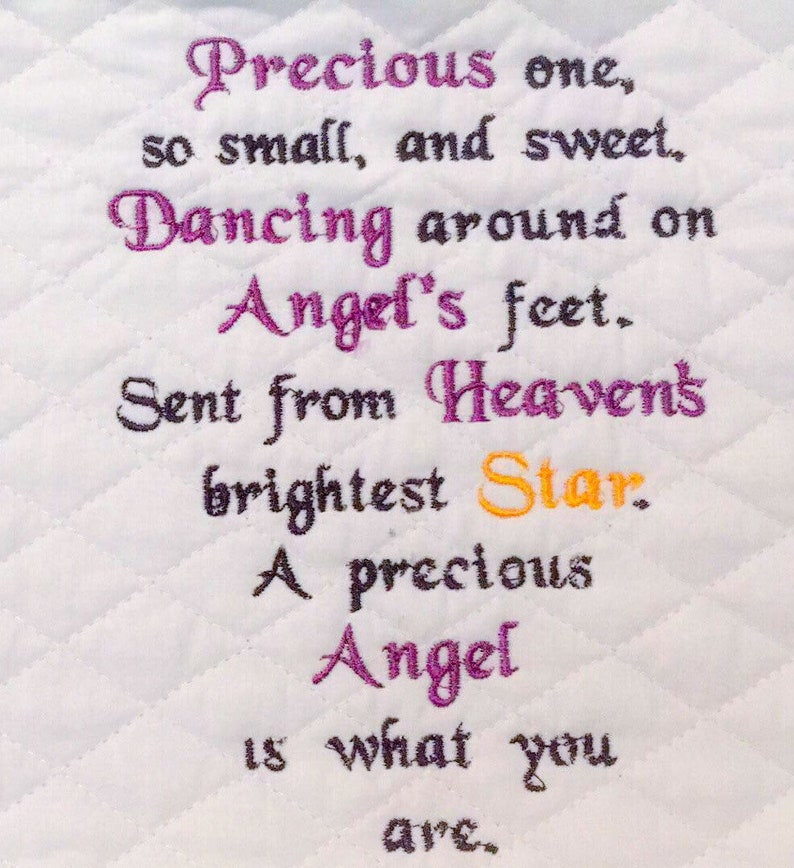 Precious one,
so small, and sweet.
Dancing around on
Angel's feet.
Sent from Heaven's
brightest Star.
A precious
Angel
is what you
are.